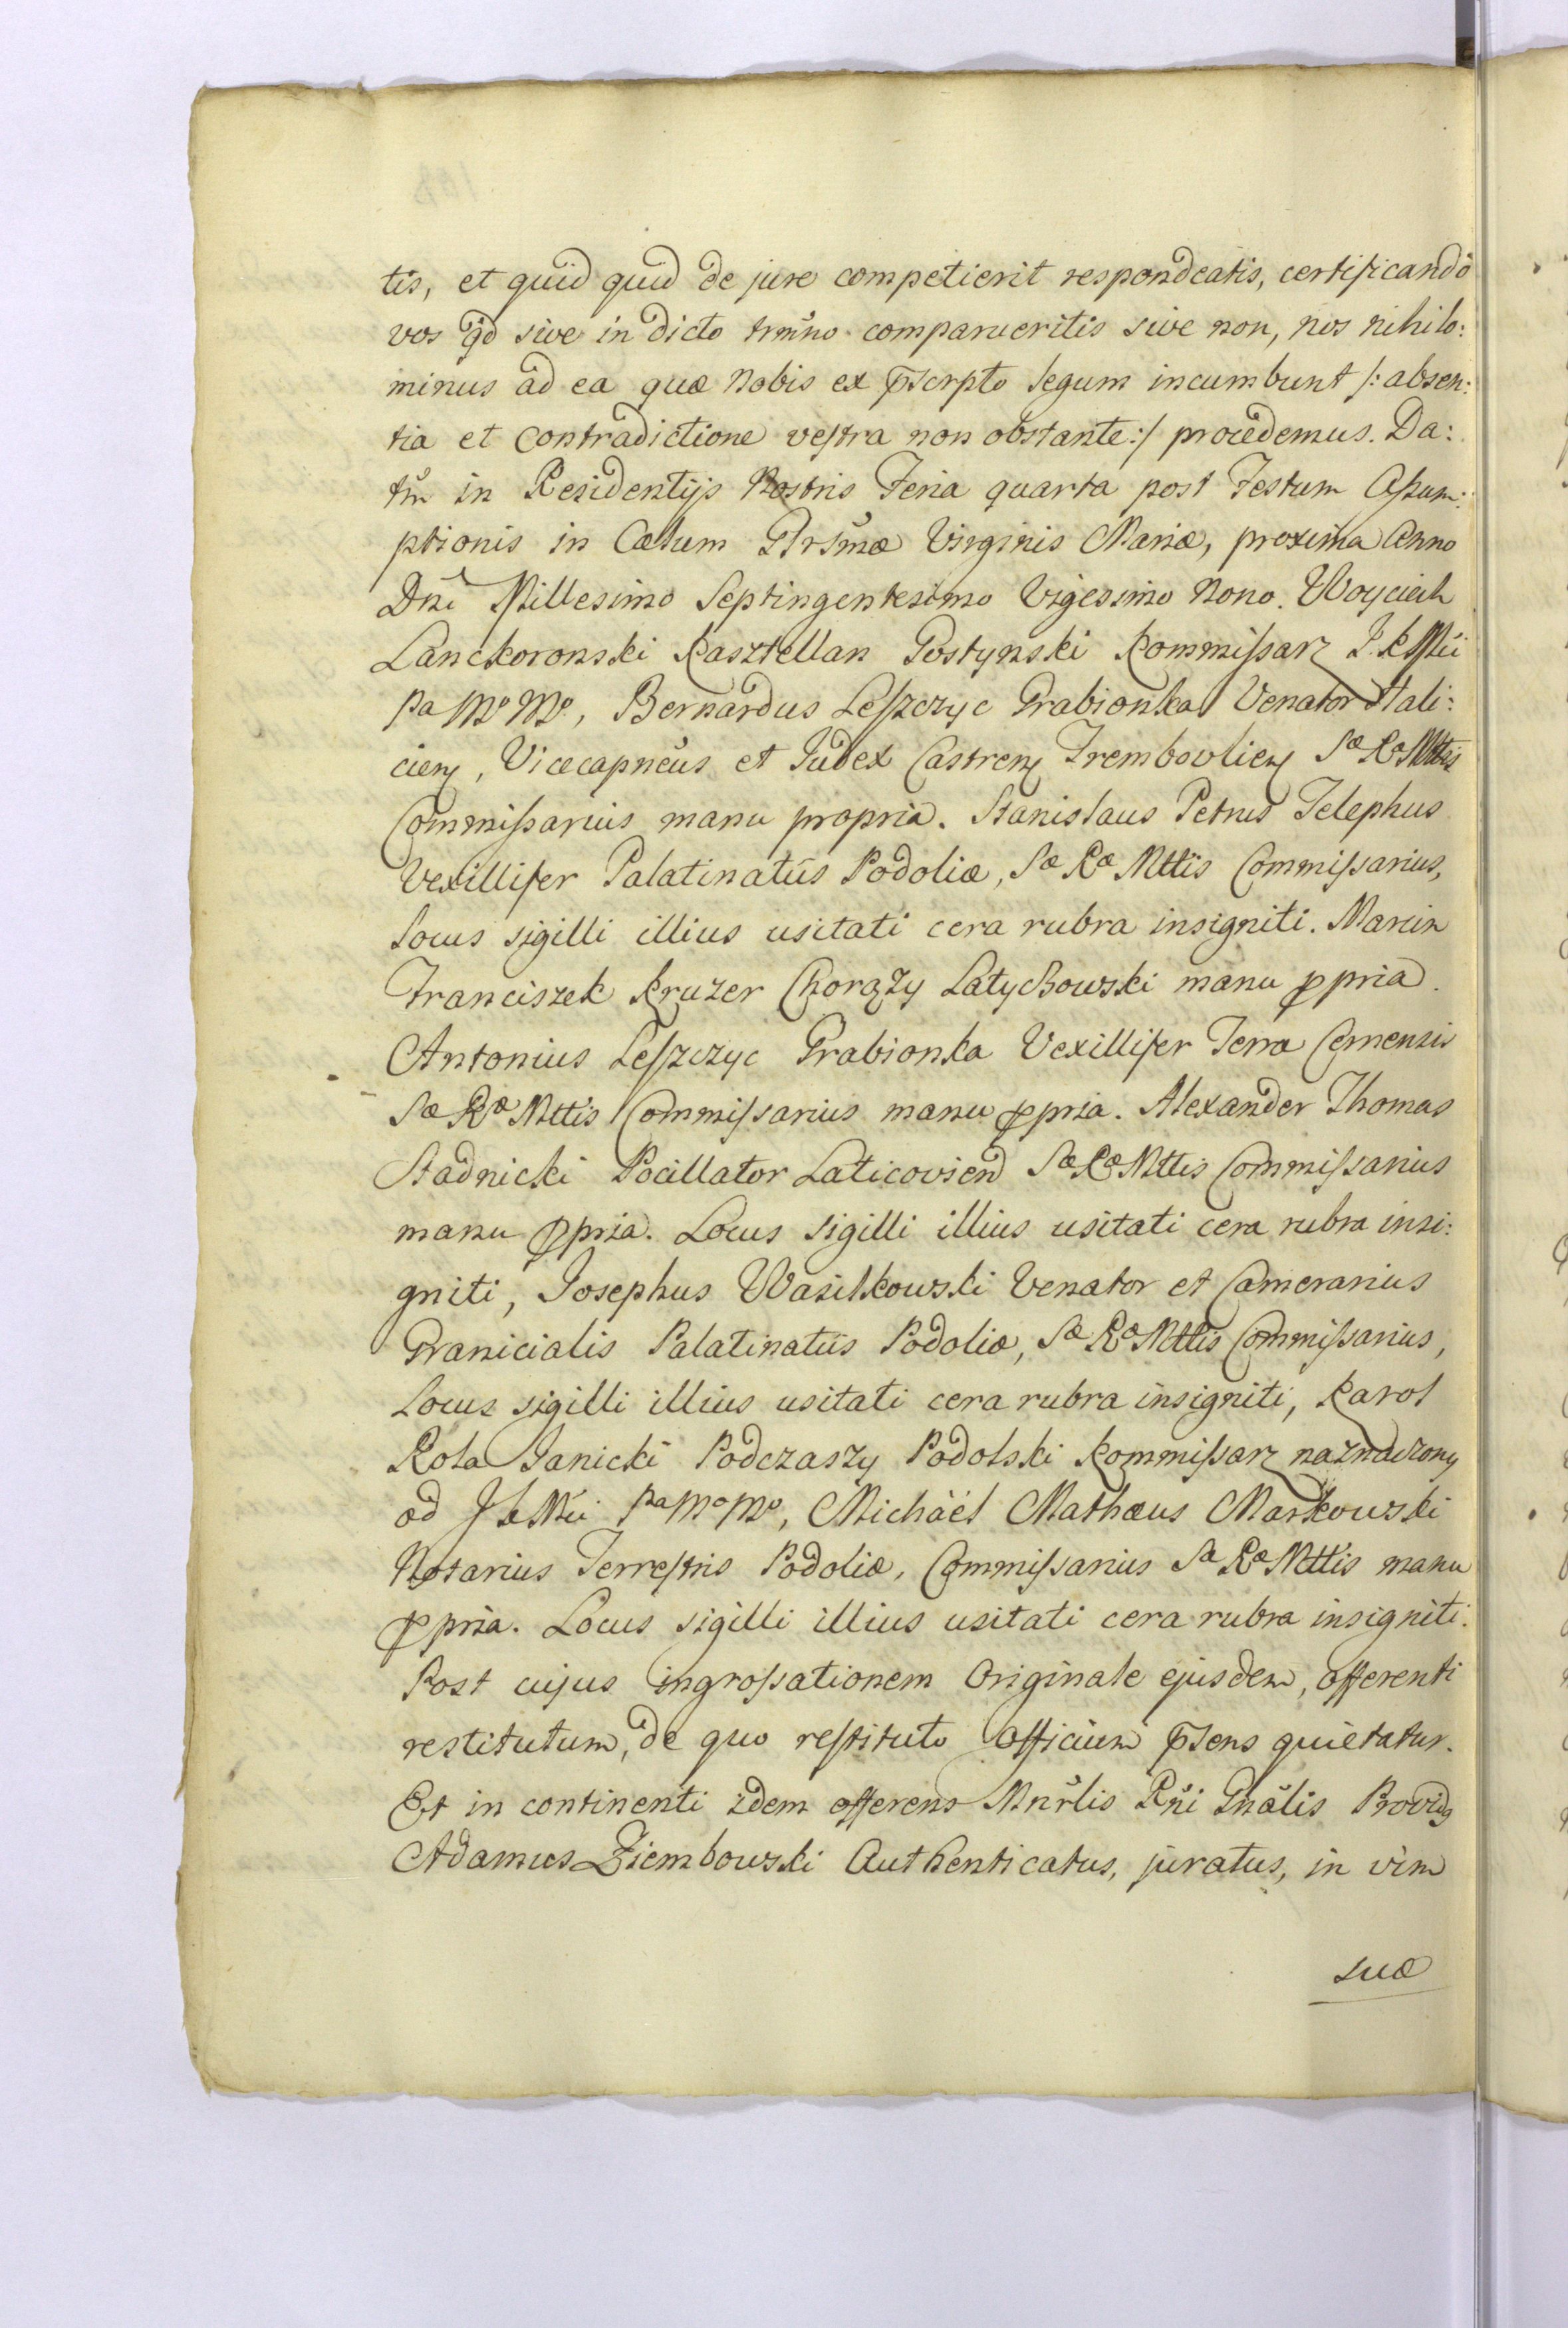 tis, et quid quid de jure competierit respondeatis, certificando
vos qd sive in dicto trmno comparueritis sive non, nos nihilo:
minus ad ea quæ Nobis ex pscrpto legum incumbunt /: absen:
tia et contradictione vestra non obstante :/ procedemus. Da:
tm in Residentijs Nostris Feria quarta post Festum Assum:
ptionis in Cœlum Btrsmæ Virginis Mariæ, proxima Anno
Dni Millesimo Septingentesimo Vigesimo Nono. Woyciech
Lanckoronski Kasztellan Gostynski Kommissarz J. K Mci
Pa Mo Mo, Bernardus Leszczyc Grabionka Venator Hali:
cien, Vicecapneus et Judex Castren Trembovlien Sæ Ræ Mttis
Commissarius manu propria. Stanislaus Petrus Telephus
Vexillifer Palatinatûs Podoliæ, Sæ Ræ Mttis Commissarius,
locus sigilli illius usitati cera rubra insigniti. Marcin
Franciszek Kruzer Chorąży Latyczowski manu ppria.
Antonius Leszczyc Grabionka Vexillifer Terræ Cernensis
Sæ Ræ Mttis Commissarius manu ppria. Alexander Thomas
Stadnicki Pocillator Laticovien Sæ Ræ Mttis Commissarius
manu ppria. Locus sigilli illius usitati cera rubra insi:
gniti, Josephus Wasilkowski Venator et Camerarius
Granicialis Palatinatûs Podoliæ, Sæ Ræ Mttis Commissarius,
Locus sigilli illius usitati cera rubra insigniti, Karol
Rola Janicki Podczaszy Podolski Kommissarz naznaczony
od J K Mci Pa Mo Mo, Michäel Mathæus Markowski
Notarius Terrestris Podoliæ, Commissarius Sæ Ræ Mttis manu
ppria. Locus sigilli illius usitati cera rubra insigniti.
Post cujus ingrossationem Originale ejusdem, offerenti
restitutum, de quo restituto Officium psens quietatur.
Et in continenti idem offerens Mnrlis Rni Gnalis Provid
Adamus Ziembowski Authenticatus, juratus, in vim
suæ